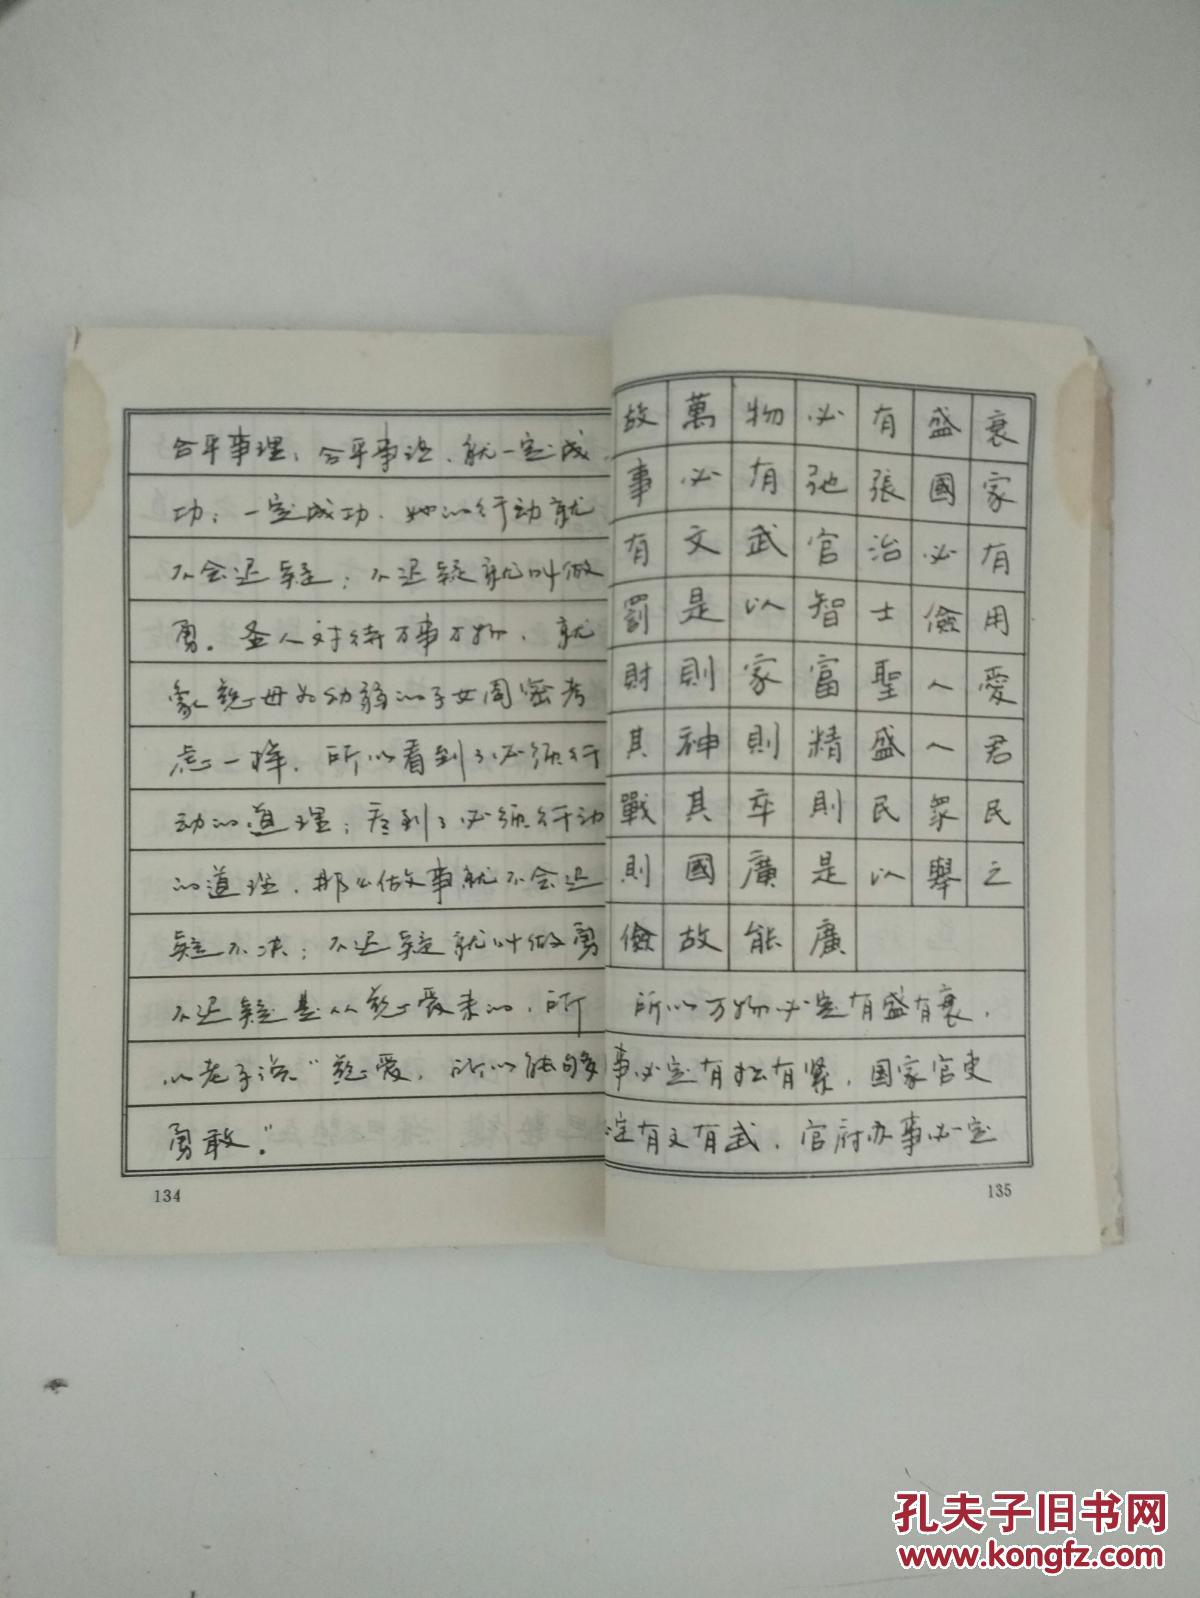 合乎事理；合乎事理，就一定成
功；一定成功，她的行动就
不会迟疑；不迟疑就叫做
勇。圣人对待万事万物，就
象慈母为幼弱的子女周密考
虑一样，所以看到了必须行
动的道理；看到了必须行动
的道理，那么做事就不会迟
疑不决；不迟疑就叫做勇
不迟疑是从慈爱来的，所
以老子说"慈爱，所以能够
勇敢。"
134
故萬物必有盛衰
事必有弛張國家
有文武官治必有
罰是以智士儉用
財則家富聖人愛
其神則精盛人君
戰其卒則民衆民
則國廣是以舉之
儉故能廣
所以万物必定有盛有衰，
事必定有松有紧，国家官吏
定有文有武，官府办事必定
135
孔夫子旧书网
www.kongfz.com